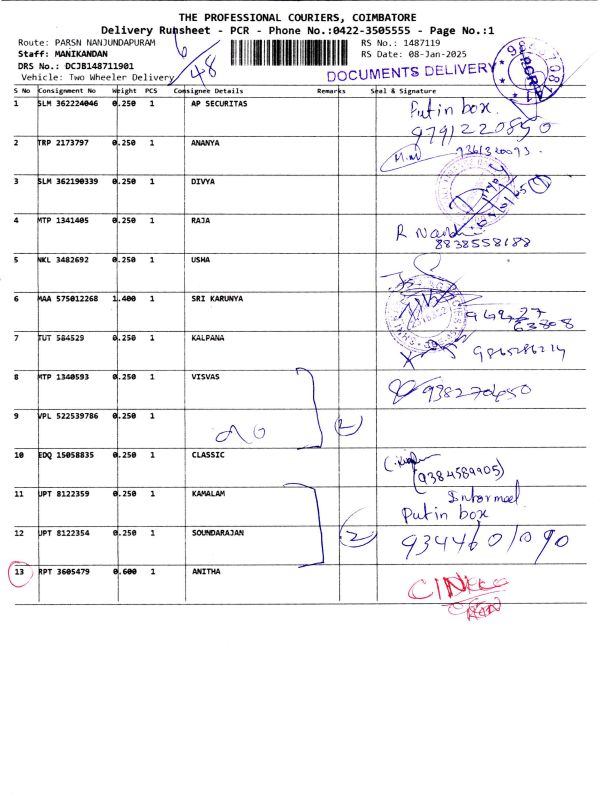 THE PROFESSIONAL COURIERS, COIMBATORE
Delivery Runsheet - PCR - Phone No.:0422-3505555 - Page No.:1
Route: PARSN NANJUNDAPURAM
RS No.: 1487119
Staff: MANIKANDAN
RS Date: 08-Jan-2025
DRS No.: DCJB148711901
Vehicle: Two Wheeler Delivery
6/48
DOCUMENTS DELIVERY
S No Consignment No Weight PCS Consignee Details Remarks Seal & Signature
1 SLM 362224046 0.250 1 AP SECURITAS Put in box
9791220850
2 TRP 2173797 0.250 1 ANANYA 9361320093
3 SLM 362190339 0.250 1 DIVYA
4 MTP 1341405 0.250 1 RAJA R Nandhi
8838558188
5 NKL 3482692 0.250 1 USHA
6 MAA 575012268 1.400 1 SRI KARUNYA
63808
7 TUT 584529 0.250 1 KALPANA 9865286214
8 MTP 1340593 0.250 1 VISVAS 938270450
9 VPL 522539786 0.250 1 2
10 EDQ 15058835 0.250 1 CLASSIC (9384589905)
11 UPT 8122359 0.250 1 KAMALAM Informed
Put in box
12 UPT 8122354 0.250 1 SOUNDARAJAN 2 9344601090
13 RPT 3605479 0.600 1 ANITHA